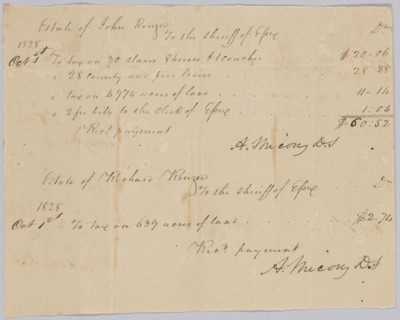 Estate of John Rouzee Dr
To the sheriff of Essex
1828
Oct 1st To tax on 30 slaves 8 horses & 1 coachee $20-06
" 28 county and poor 28 28
" tax on 4972 acres of land 11-14
" 2 fee bills to the Clerk of Essex 1:04
$60:52
Recd payment
A. Micou, D.S
Estate of Richard Dr
To the sheriff of Essex
1828
Oct 1st To tax on 639 acres of land $2.74
Recd payment
A. Micou, D.S